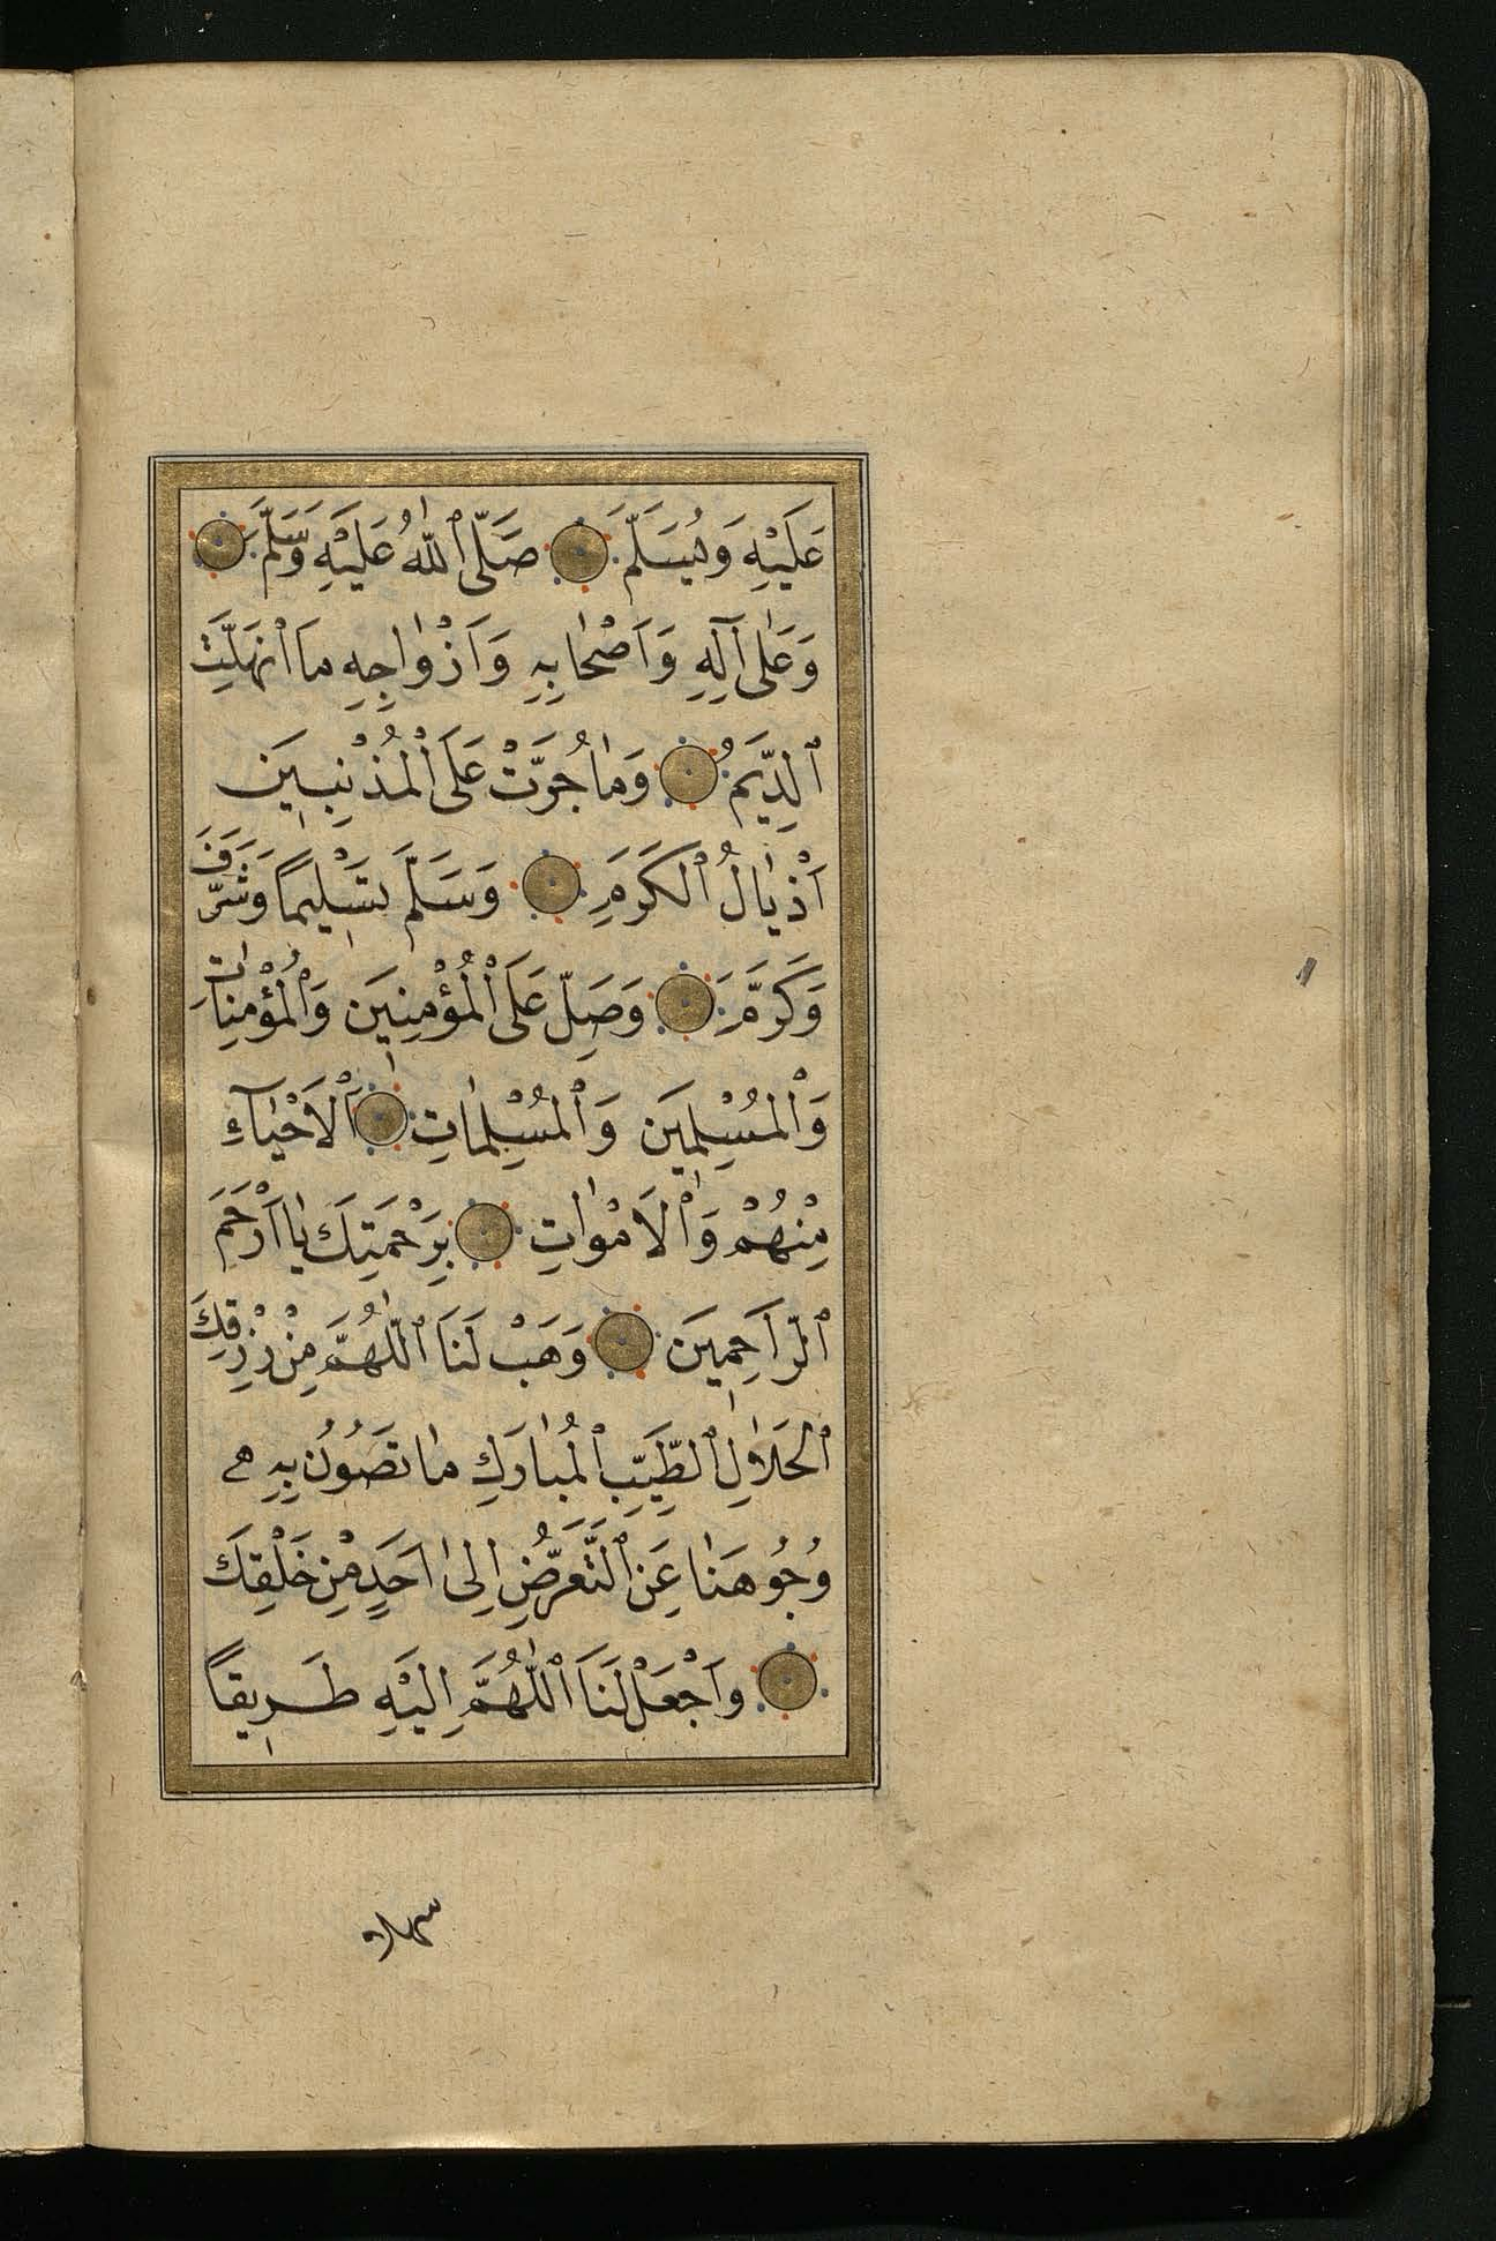 عَلَيْهِ وَيُسَلِّمَ صَلَّى ٱللّٰهُ عَلَيْهِ وَسَلَّمَ
وَعَلٰى آلِهِ وَاَصْحٰابِهِ وَاَزْوٰاجِهِ مَا انْهَلَّتِ
ٱلدِّيَمُ وَمٰا جُرَّتْ عَلَى ٱلْمُذْنِبِينَ
اَذْيٰالُ ٱلْكَرَمِ وَسَلَّمَ تَسْلِيمًا وَشَرَّفَ
وَكَرَّمَ وَصَلِّ عَلَى ٱلْمُؤْمِنِينَ وَٱلْمُؤْمِنٰاتِ
وَٱلْمُسْلِمِينَ وَٱلْمُسْلِمٰاتِ ٱلْاَحْيٰآءِ
مِنْهُمْ وَٱلْاَمْوٰاتِ بِرَحْمَتِكَ يٰا اَرْحَمَ
ٱلرَّاحِمِينَ وَهَبْ لَنَا ٱللّٰهُمَّ مِنْ رِزْقِكَ
ٱلْحَلاٰلِ ٱلطَّيِّبِ ٱلْمُبٰارَكِ مٰا تَصُونُ بِهِ
وُجُوهَنٰا عَنِ ٱلتَّعَرُّضِ اِلٰى اَحَدٍ مِنْ خَلْقِكَ
وَاجْعَلْ لَنَا ٱللّٰهُمَّ اِلَيْهِ طَرِيقًا
سهلا